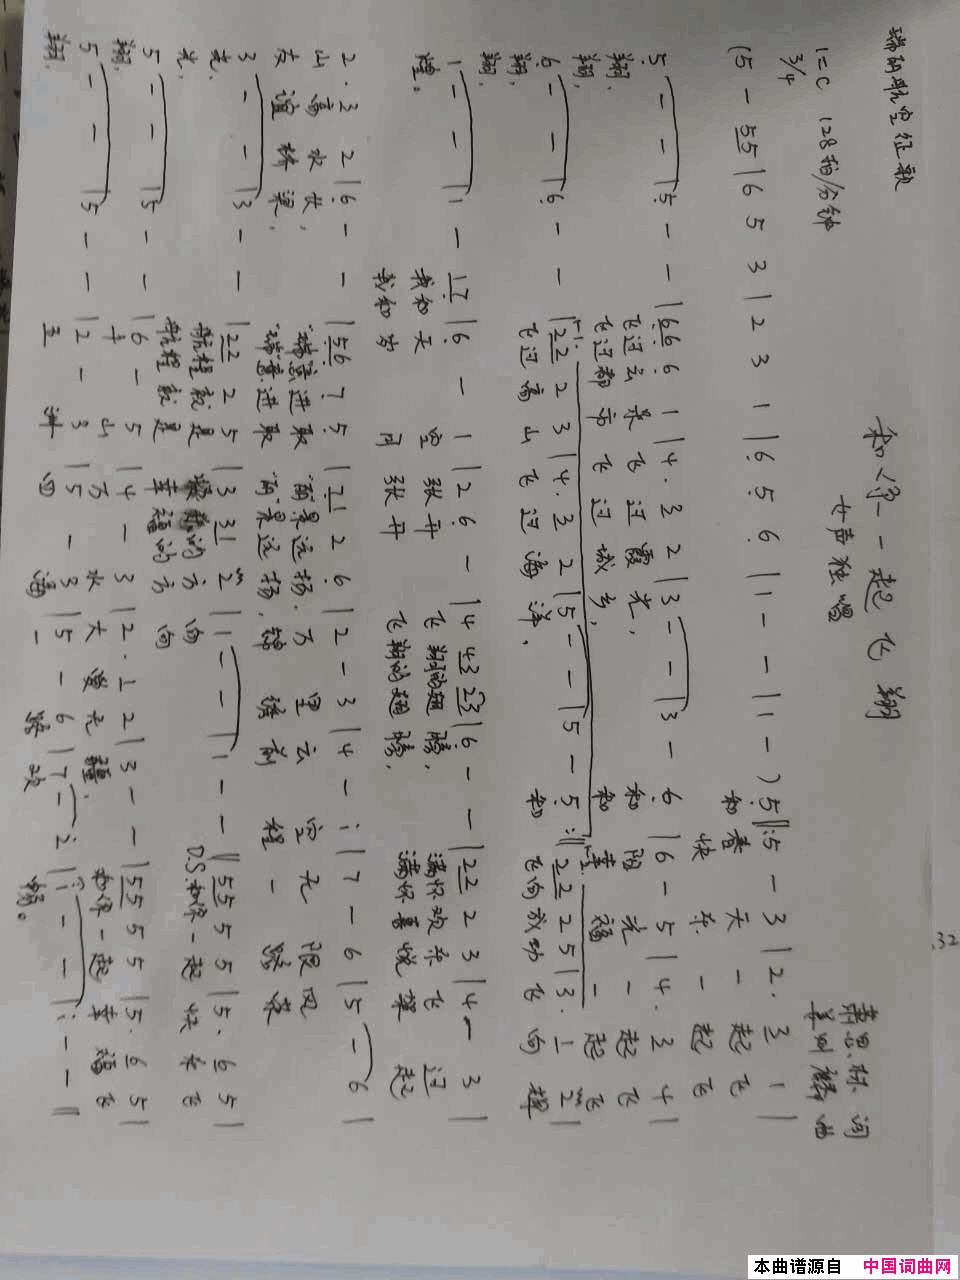 32
瑞丽航空征歌 和你一起飞翔
女声独唱
1=C 128拍/分钟 词
3/4 曲
(5 - 55|6 5 3|2 3 1|6 5 6|1 - -|1 - -) 5‖:5 - 3|2. 3 1|
和春天一起飞
快乐一起飞
5 - -|5 - -|66 6 1|4. 3 2|3 - -|3 - 6|6 - 5|4. 3 4|
翔, 飞过云朵飞过霞光, 和阳光一起飞
翔, 飞过都市飞过城乡, 和幸福一起飞
6 - -|6 - -|22 2 3|4. 3 2|5 - -|5 - 5:‖22 2 5|3. 1 2|
翔, 飞过高山飞过海洋, 和 飞向成功飞向辉
翔,
1 - -|1 - 17|6 - 1|2 6 -|4 43 23|6 - -|22 2 3|4 - 3|
煌。 我和天空张开飞翔的翅膀, 满怀欢乐飞过
我和 张开飞翔的翅膀, 满怀喜悦撑起
2. 3 2|6 - -|56 7 5|21 2 6|2 - 3|4 - i|7 - 6|5 - 6|
山高水长, “瑞”意进取“丽”景远扬, 万里云空无限风
友谊桥梁, “瑞”意进取“丽”景远扬, 锦绣前程一路荣
3 - -|3 - -|22 2 5|3 31 2|1 - -|1 - -‖55 5 5|5. 6 5|
光, 航程就是凝聚的方向 D.S.和你一起快乐飞
光, 航程就是幸福的方向
5 - -|5 - -|6 - 5|4 - 3|2. 1 2|3 - -|55 5 5|5. 6 5|
翔, 千山万水大爱无疆, 和你一起幸福飞
5 - -|5 - -|2 - 3|5 - 3|5 - 6|7 - 2|i - -|i - -‖
翔, 五洲四海一路欢畅。
本曲谱源自 中国词曲网